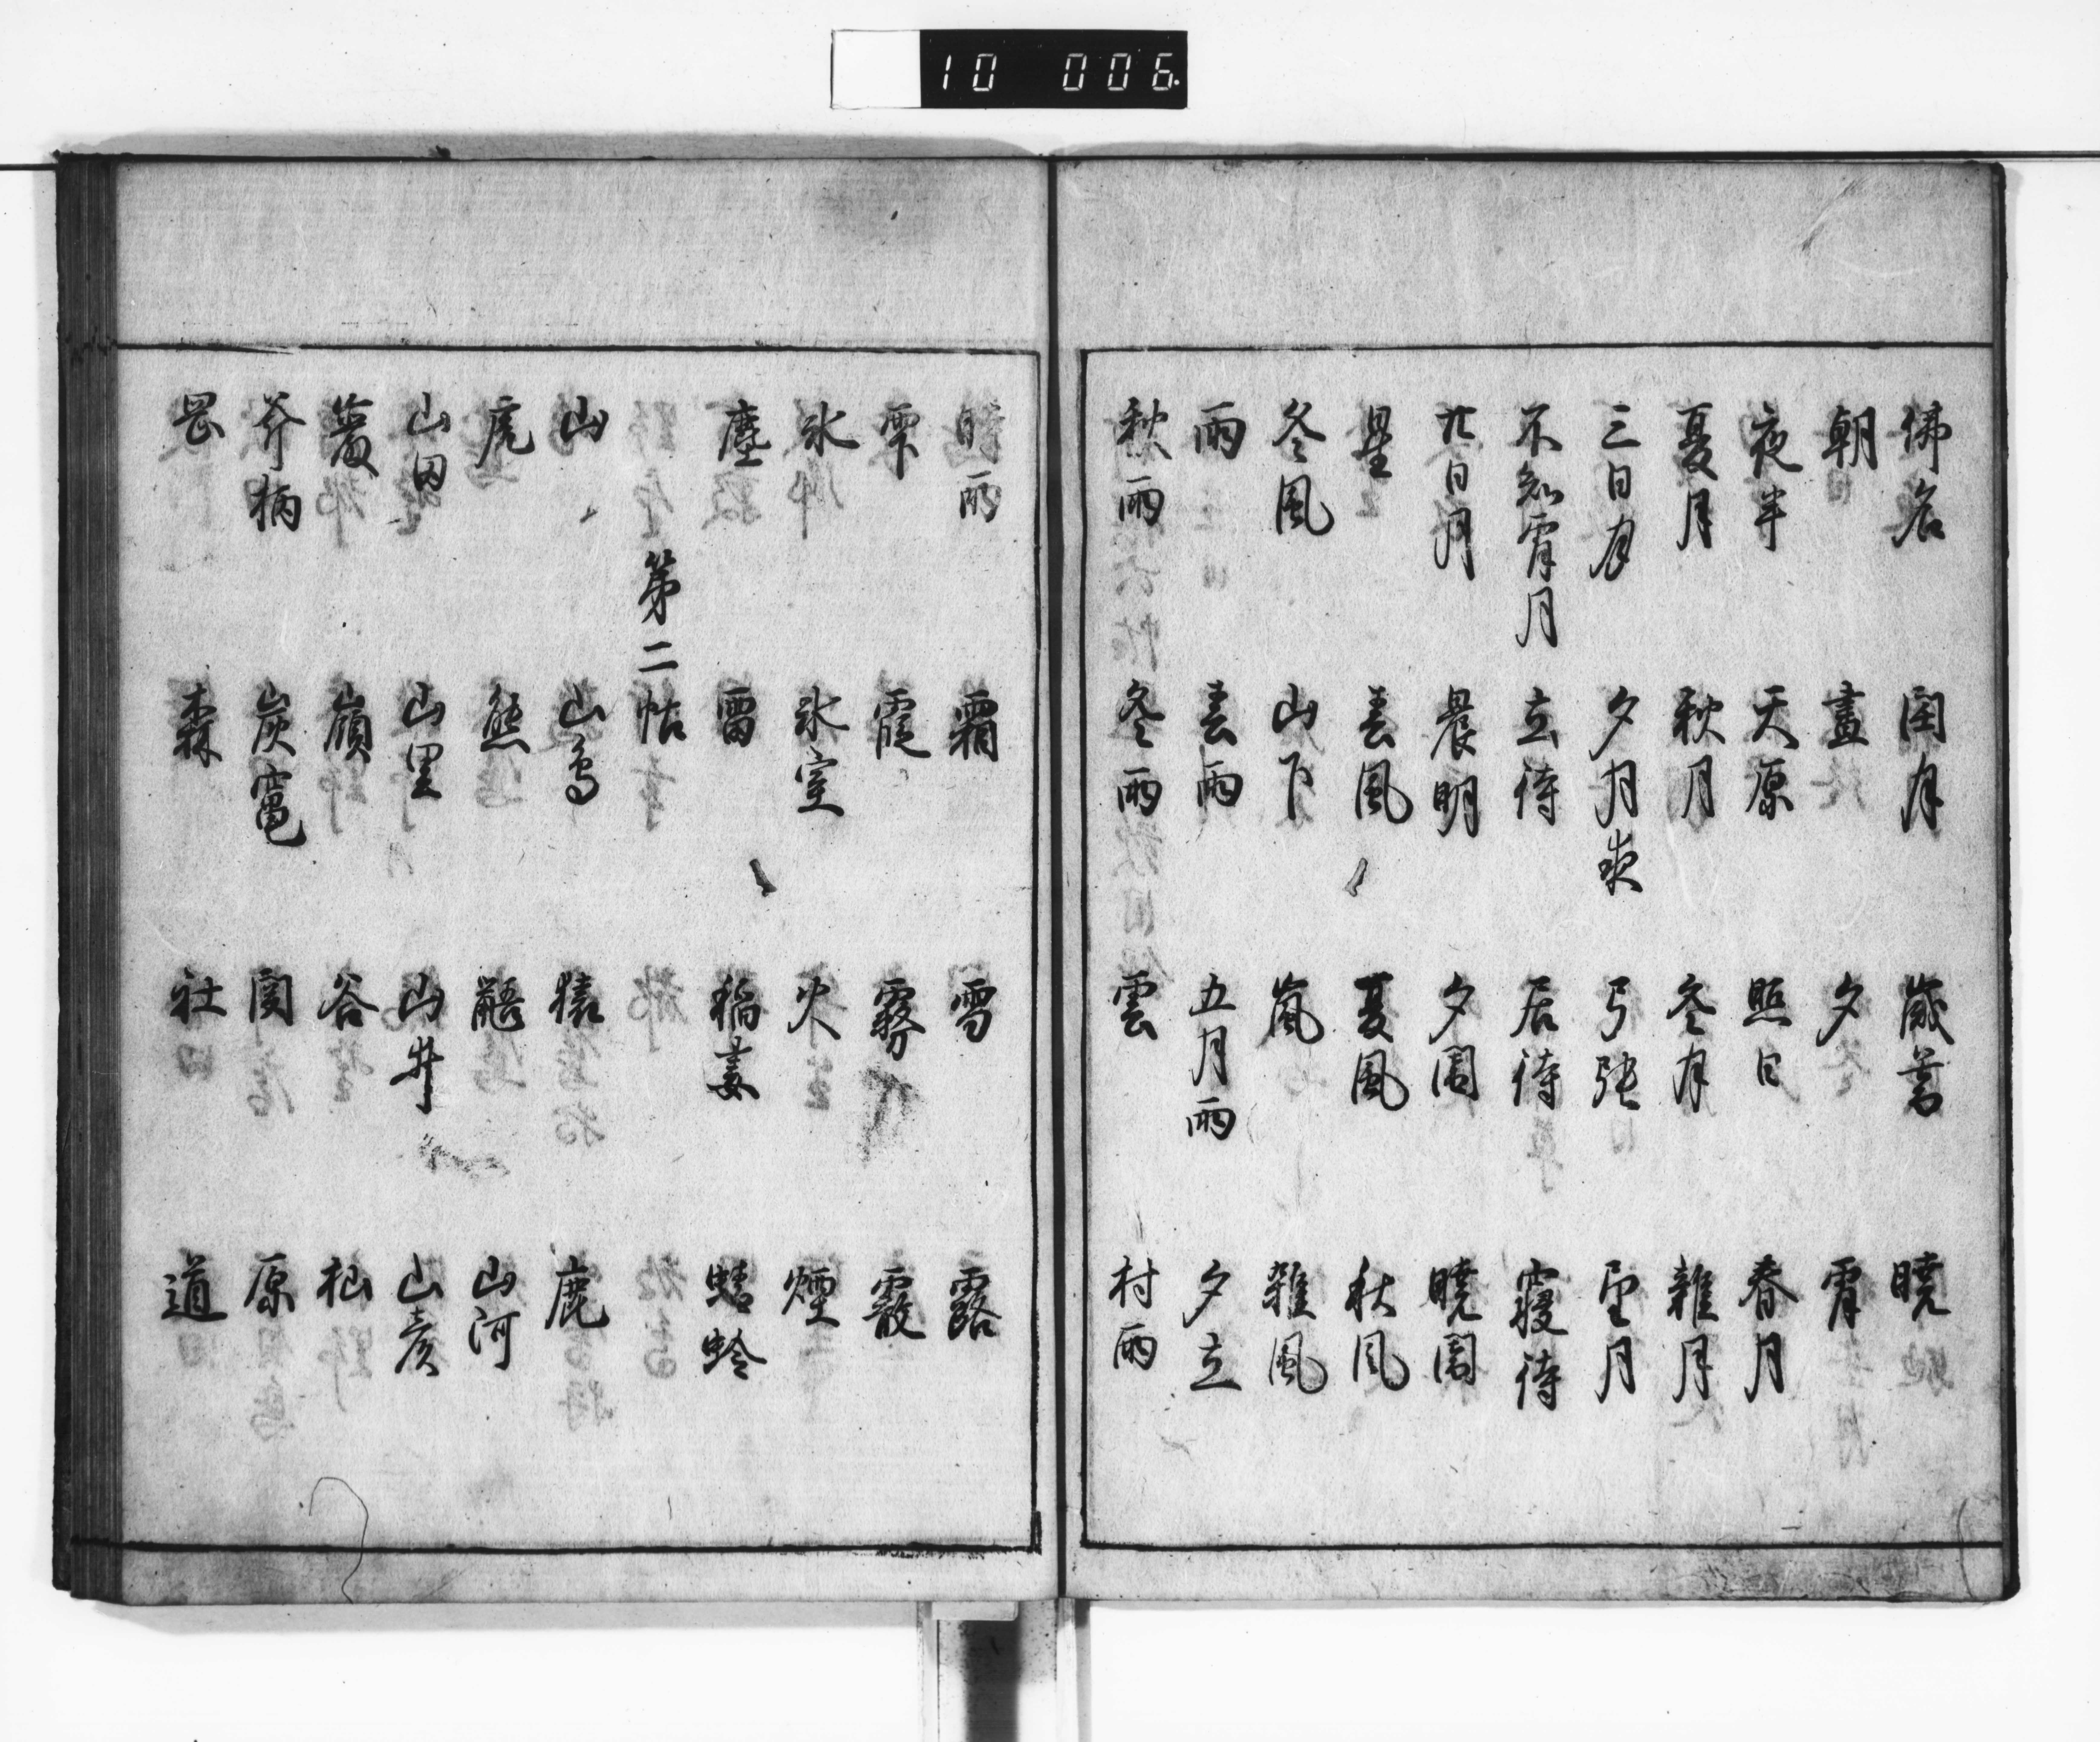 10 006.
佛名 閏月 歳暮 曉
朝 晝 夕 宵
夜半 天原 照日 春月
夏月 秋月 冬月 雜月
三日月 夕月夜 弓張 望月
不知宵月 立待 居待 寢待
廿日月 晨明 夕闇 曉闇
星 春風 夏風 秋風
冬風 山下 嵐 雜風
雨 春雨 五月雨 夕立
秋雨 冬雨 雲 村雨
時雨 霜 雪 露
雫 霞 霧 霰
氷 氷室 火 煙
塵 雷 稲妻 蜻蛉
第二帖
山 山鳥 猿 鹿
虎 熊 鼯 山河
山田 山里 山井 山彦
嶺 谷 杣
斧柄 炭竃 関 原
岡 森 社 道